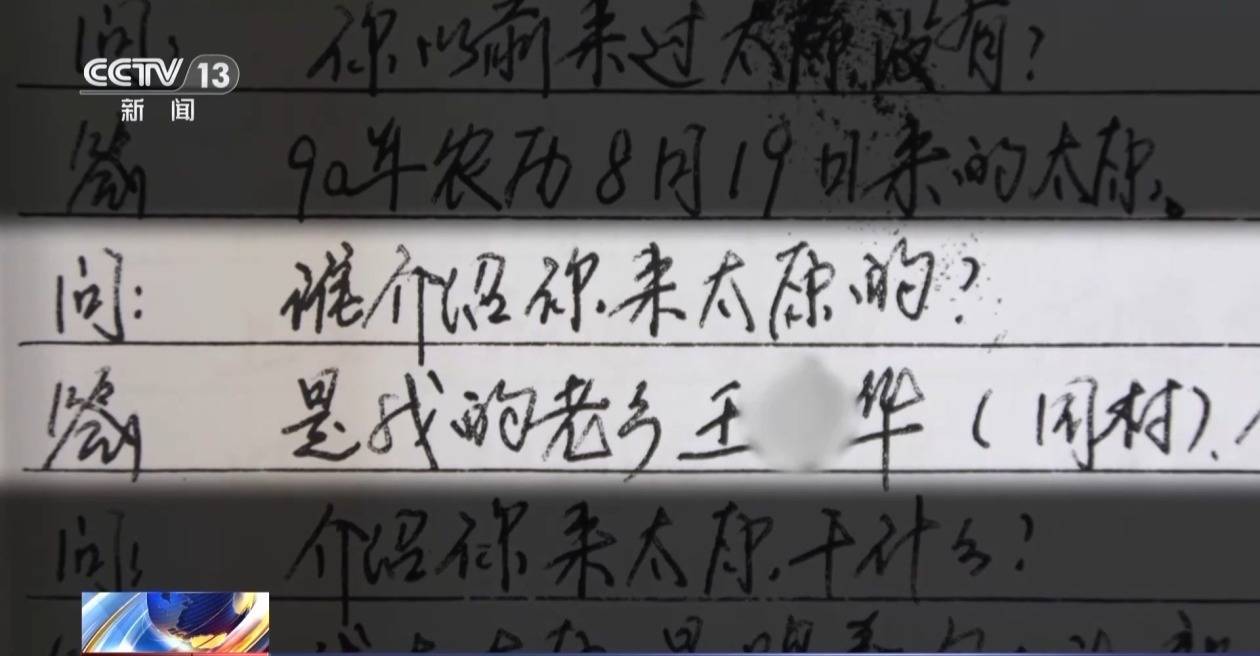 问: 你以前来过太原没有?
CCTV 13
新闻
答 90年农历8月19日来的太原。
问: 谁介绍你来太原的?
答 是我的老乡王 华(同村)、
问: 介绍你来太原干什么?